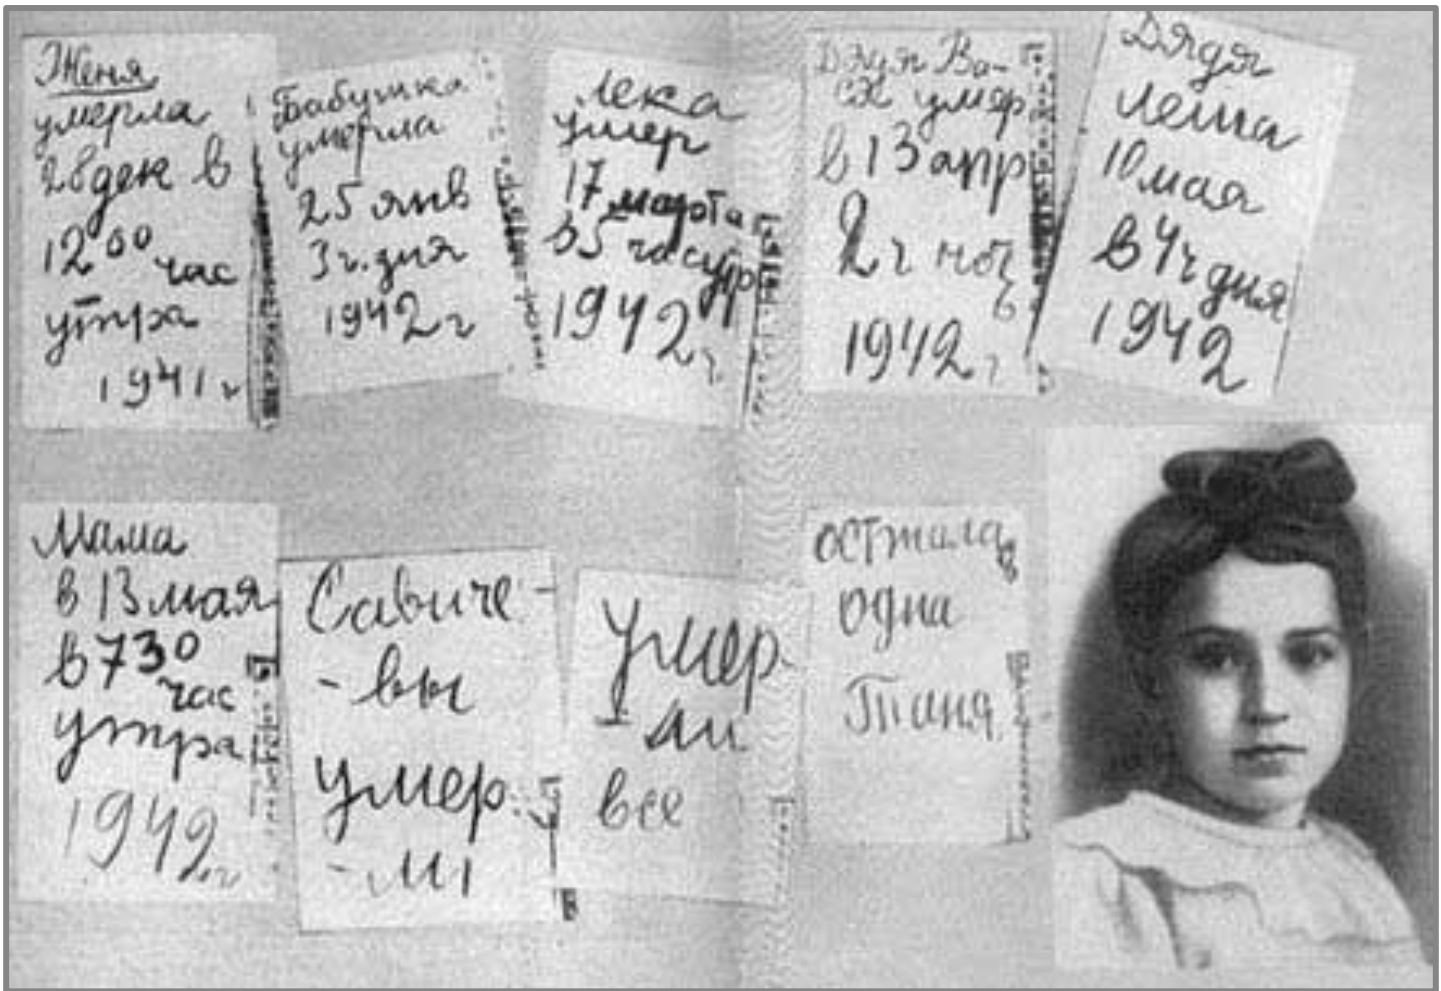 Женя
умерла
28 дек в
12 00 час
утра
1941 г
Бабушка
умерла
25 янв
3 ч. дня
1942 г
Лека
умер
17 марта
в 5 час утр
1942 г.
Дядя Ва-
ся умер
в 13 апр
2 ч ночь
1942 г
Дядя
Леша
10 мая
в 4 ч дня
1942
Мама
в 13 мая
в 7 30
час
утра
1942 г
Савиче-
-вы
умер
-ли
Умер-
-ли
все
осталась
одна
Таня